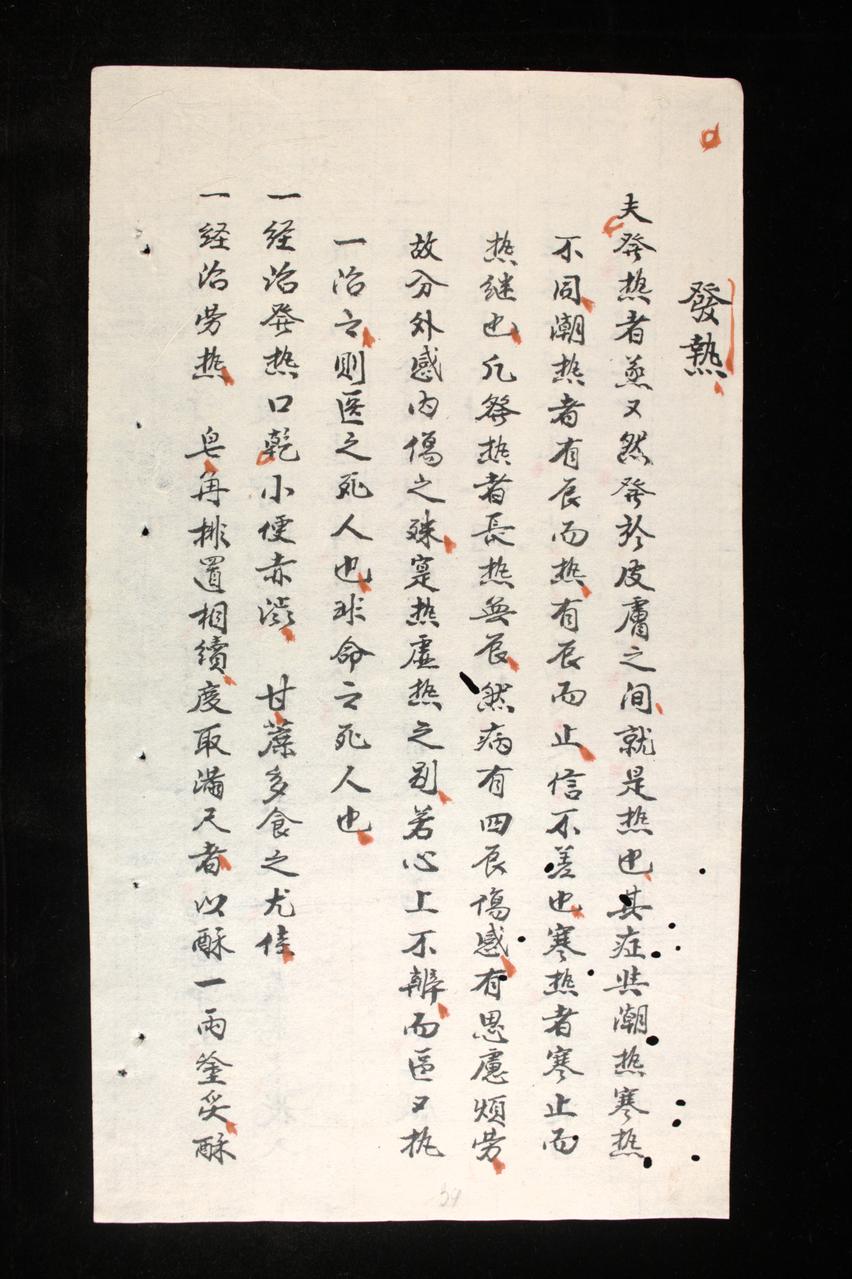 發熱
夫發热者蒸又然發於皮膚之间就是热也其症与潮热寒热
不同潮热者有辰而热有辰而止信不差也寒热者寒止而
热継也凡發热者長热無辰然病有四辰傷感有思慮煩劳
故分外感内傷之殊寔热虚热之别若心上不辨而區又执
一治之則医之死人也非命之死人也
一経治發热口乾小便赤澁 甘蔗多食之尤佳
一経治劳热 皂角排置相續度取滿尺者以酥一两釜炙酥
39